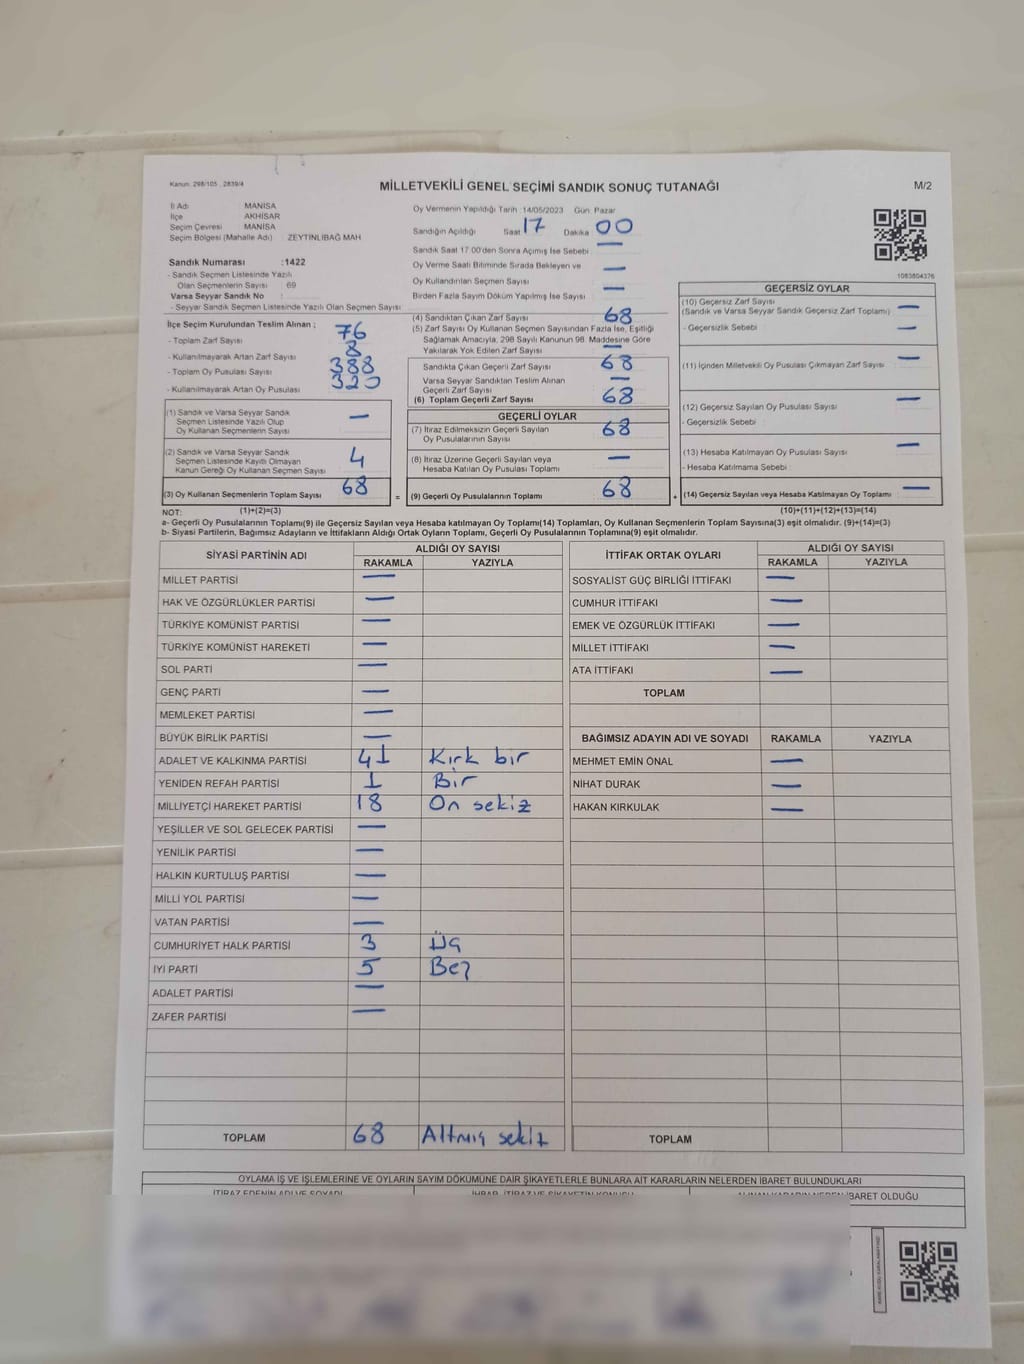 Kanun: 298/105 , 2839/4
MİLLETVEKİLİ GENEL SEÇİMİ SANDIK SONUÇ TUTANAĞI
M/2
İl Adı MANİSA
İlçe AKHİSAR
Seçim Çevresi MANİSA
Seçim Bölgesi (Mahalle Adı) : ZEYTİNLİBAĞ MAH
Sandık Numarası :1422
- Sandık Seçmen Listesinde Yazılı
Olan Seçmenlerin Sayısı : 69
Varsa Seyyar Sandık No :
- Seyyar Sandık Seçmen Listesinde Yazılı Olan Seçmen Sayısı
Oy Vermenin Yapıldığı Tarih :14/05/2023 Gün: Pazar
Sandığın Açıldığı Saat 17 Dakika 00
Sandık Saat 17.00'den Sonra Açılmış İse Sebebi —
Oy Verme Saati Bitiminde Sırada Bekleyen ve
Oy Kullandırılan Seçmen Sayısı —
Birden Fazla Sayım Döküm Yapılmış İse Sayısı —
1083804376
İlçe Seçim Kurulundan Teslim Alınan ;
- Toplam Zarf Sayısı 76
- Kullanılmayarak Artan Zarf Sayısı 8
- Toplam Oy Pusulası Sayısı 388
- Kullanılmayarak Artan Oy Pusulası 320
(1) Sandık ve Varsa Seyyar Sandık
Seçmen Listesinde Yazılı Olup
Oy Kullanan Seçmenlerin Sayısı —
(2) Sandık ve Varsa Seyyar Sandık
Seçmen Listesinde Kayıtlı Olmayan
Kanun Gereği Oy Kullanan Seçmen Sayısı 4
(3) Oy Kullanan Seçmenlerin Toplam Sayısı 68 =
(4) Sandıktan Çıkan Zarf Sayısı 68
(5) Zarf Sayısı Oy Kullanan Seçmen Sayısından Fazla İse, Eşitliği
Sağlamak Amacıyla, 298 Sayılı Kanunun 98. Maddesine Göre
Yakılarak Yok Edilen Zarf Sayısı —
Sandıkta Çıkan Geçerli Zarf Sayısı 68
Varsa Seyyar Sandıktan Teslim Alınan
Geçerli Zarf Sayısı —
(6) Toplam Geçerli Zarf Sayısı 68
GEÇERLİ OYLAR
(7) İtiraz Edilmeksizin Geçerli Sayılan
Oy Pusulalarının Sayısı 68
(8) İtiraz Üzerine Geçerli Sayılan veya
Hesaba Katılan Oy Pusulası Toplamı —
(9) Geçerli Oy Pusulalarının Toplamı 68 +
GEÇERSİZ OYLAR
(10) Geçersiz Zarf Sayısı
(Sandık ve Varsa Seyyar Sandık Geçersiz Zarf Toplamı) —
- Geçersizlik Sebebi —
(11) İçinden Milletvekili Oy Pusulası Çıkmayan Zarf Sayısı —
(12) Geçersiz Sayılan Oy Pusulası Sayısı —
- Geçersizlik Sebebi
(13) Hesaba Katılmayan Oy Pusulası Sayısı —
- Hesaba Katılmama Sebebi
(14) Geçersiz Sayılan veya Hesaba Katılmayan Oy Toplamı —
NOT: (1)+(2)=(3) (10)+(11)+(12)+(13)=(14)
a- Geçerli Oy Pusulalarının Toplamı(9) ile Geçersiz Sayılan veya Hesaba katılmayan Oy Toplamı(14) Toplamları, Oy Kullanan Seçmenlerin Toplam Sayısına(3) eşit olmalıdır. (9)+(14)=(3)
b- Siyasi Partilerin, Bağımsız Adayların ve İttifakların Aldığı Ortak Oyların Toplamı, Geçerli Oy Pusulalarının Toplamına(9) eşit olmalıdır.
SİYASİ PARTİNİN ADI ALDIĞI OY SAYISI
RAKAMLA YAZIYLA
MİLLET PARTİSİ —
HAK VE ÖZGÜRLÜKLER PARTİSİ —
TÜRKİYE KOMÜNİST PARTİSİ —
TÜRKİYE KOMÜNİST HAREKETİ —
SOL PARTİ —
GENÇ PARTİ —
MEMLEKET PARTİSİ —
BÜYÜK BİRLİK PARTİSİ —
ADALET VE KALKINMA PARTİSİ 41 Kırk bir
YENİDEN REFAH PARTİSİ 1 Bir
MİLLİYETÇİ HAREKET PARTİSİ 18 On sekiz
YEŞİLLER VE SOL GELECEK PARTİSİ —
YENİLİK PARTİSİ —
HALKIN KURTULUŞ PARTİSİ —
MİLLİ YOL PARTİSİ —
VATAN PARTİSİ —
CUMHURİYET HALK PARTİSİ 3 Üç
İYİ PARTİ 5 Beş
ADALET PARTİSİ —
ZAFER PARTİSİ —
TOPLAM 68 Altmış sekiz
İTTİFAK ORTAK OYLARI ALDIĞI OY SAYISI
RAKAMLA YAZIYLA
SOSYALİST GÜÇ BİRLİĞİ İTTİFAKI —
CUMHUR İTTİFAKI —
EMEK VE ÖZGÜRLÜK İTTİFAKI —
MİLLET İTTİFAKI —
ATA İTTİFAKI —
TOPLAM
BAĞIMSIZ ADAYIN ADI VE SOYADI RAKAMLA YAZIYLA
MEHMET EMİN ÖNAL —
NİHAT DURAK —
HAKAN KIRKULAK —
TOPLAM
OYLAMA İŞ VE İŞLEMLERİNE VE OYLARIN SAYIM DÖKÜMÜNE DAİR ŞİKAYETLERLE BUNLARA AİT KARARLARIN NELERDEN İBARET BULUNDUKLARI
İTİRAZ EDENİN ADI VE SOYADI İHBAR, İTİRAZ VE ŞİKAYETİN KONUSU İBARET OLDUĞU